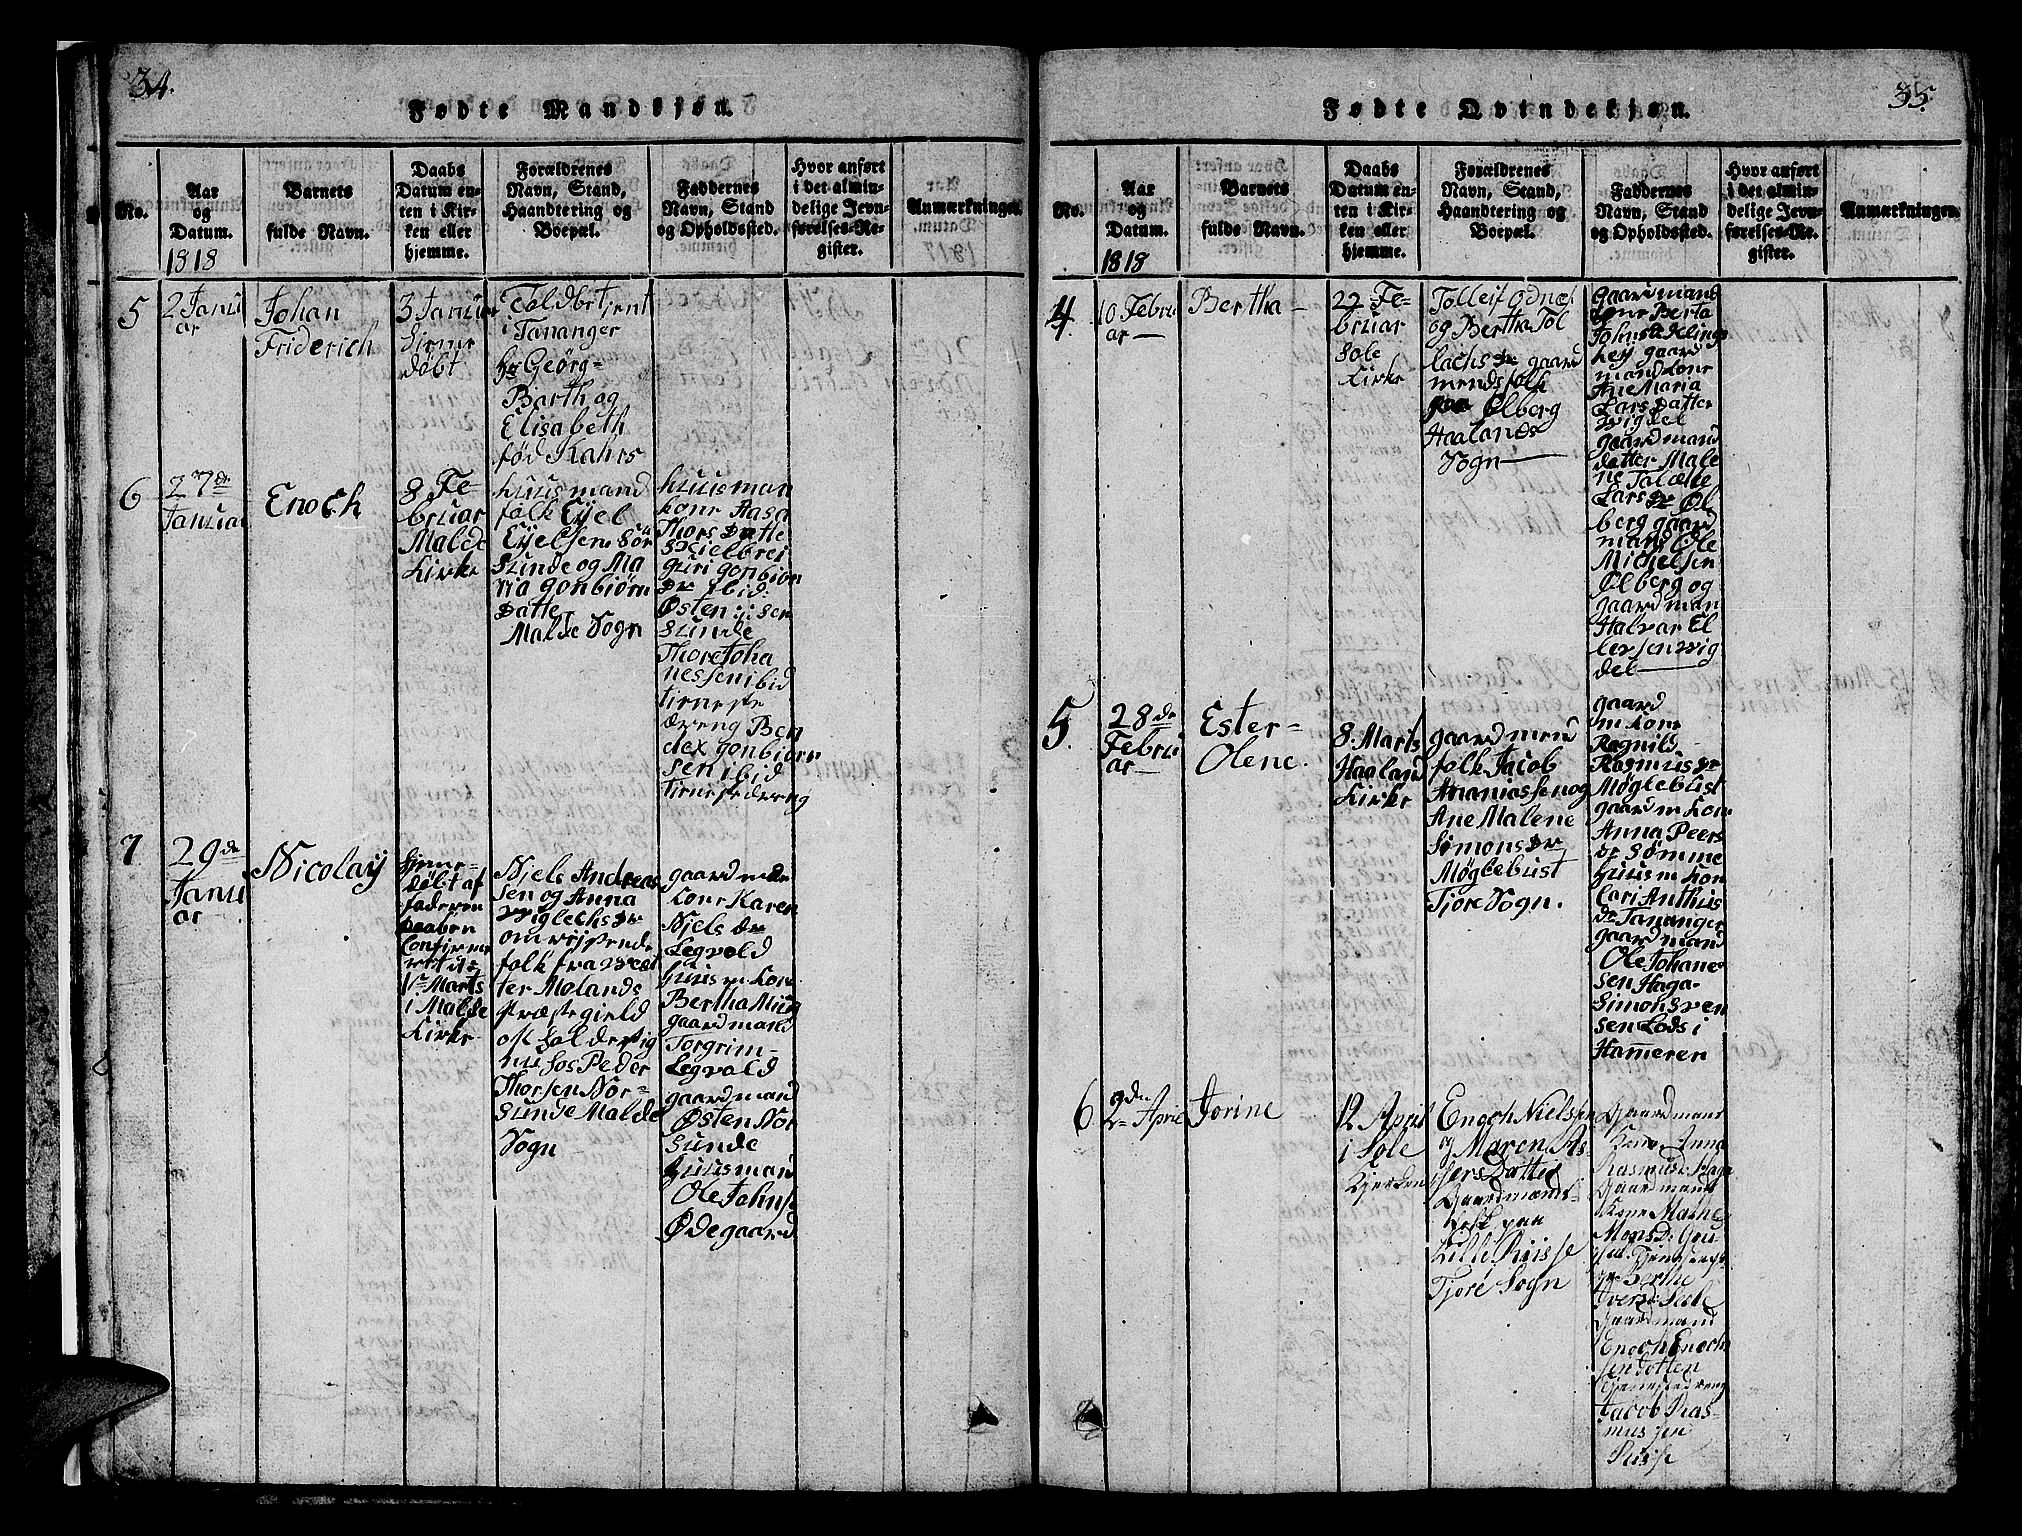 34.
Fødte Mandkjøn.
No.
Aar
og
Datum.
1818
Barnets
fulde Navn.
Daabs
Datum en-
ten i Kir-
ken eller
hjemme.
Forældrenes
Navn, Stand,
Haandtering og
Boepæl.
Faddernes
Navn, Stand
og Opholdssted.
Hvor anført
i det almin-
delige Jevn-
førelses-Re-
gister.
Anmærkninger.
5
2 Janu
ar
Johan
Friderich
3 Januar
hieme
døbt
Toldbetjent
i Tananger
Hr Geörg
Barth og
Elisabeth
fød Kahrs
6
27de
Januar
Enoch
8 Fe-
bruar
Malde
Kirke
huusmand
folk Ejel
Ejelsen Sör
Sunde og Ma
ria gonbiörn
Datte
Malde Sogn
huusman
kone Aasa
Thors Datte
Skielbrei
guri gonbiörn
Dr ibid:
Østen
Sunde
Thore Joha
nessen ibid
tieneste
dreng Ben
dex gonbiörn
sen ibid
tienestedreng
7
29de
Janu
ar
Nicolay
hieme
døbt af
faderen
daaben
Confirme
ret d:
1ste Marts
i Malde
Kirke
Niels Andreas
sen og Anna
Viglechs Dr
omreisende
folk fra Vest
ter Molands
Præstegield
ophold ervig
nu hos Peder
Thorsen Nör-
Sunde Malde
Sogn
gaardmds
kone Karen
Niels Dr
Legvold
huusm kone
Bertha Mug
gaardmand
Torgrim
Legvold
gaardmand
Østen Nör
Sunde
huusmand
Ole Johns
Ødegaard
35.
Fødte Qvindekjøn.
No.
Aar
og
Datum.
1818
Barnets
fulde Navn.
Daabs
Datum en-
ten i Kir-
ken eller
hjemme.
Forældrenes
Navn, Stand,
Haandtering og
Boepæl.
Faddernes
Navn, Stand
og Opholdssted.
Hvor anført
i det almin-
delige Jevn-
førelses-Re-
gister.
Anmærkninger.
4
10 Febru
ar
Bertha
22 Fe-
bruar
Sole
Kirke
Tolleif Odnæs
og Bertha Tol
lachs Dr gaard
mendsfolk
paa Ølberg
Haalands
Sogn
gaardmand
kone Berta
Johns
hey gaard
mand kone
Ane Maria
Lars Datter
Vigdel
gaardmand
datter Male
ne
Lars Dr Øl
berg gaard
mand Ole
Michelsen
Ølberg og
gaardman
Halvar El
lersen Vig
del
5.
28de
Febru
ar
Ester
Olene.
8 Marts
Haaland
Kirke
gaardmen
folk Jacob
Ananiassen og
Ane Malene
Simons Dr
Møglebust
Tjore Sogn.
gaard
m kone
Ragnild
Rasmus Dr
Møglebust
gaardm kone
Anna Peers
Dr Sømme
huusm kone
Cari Anthus
Dr Tananger
gaardmand
Ole Johane
sen Haga
Simon Sven
sen Lods i
Hammeren
6
2den April
Jorine
12 April
i Sole
Kjerken
Engoch Nielssen
og Maren As-
sers Datter
Gaardmænds-
folk paa
Lille Riisse
Tjore Sogn
Gaardmans
Kone Anna
Rasmusd: Haga
Gaardmands
Kone Malne
Monsd:
Berthe
Iversd: Seele
Gaardmand
Enoch Enoch
sen Jotten
Tjenestedreng
Jacob Ras-
mussen
Riisse